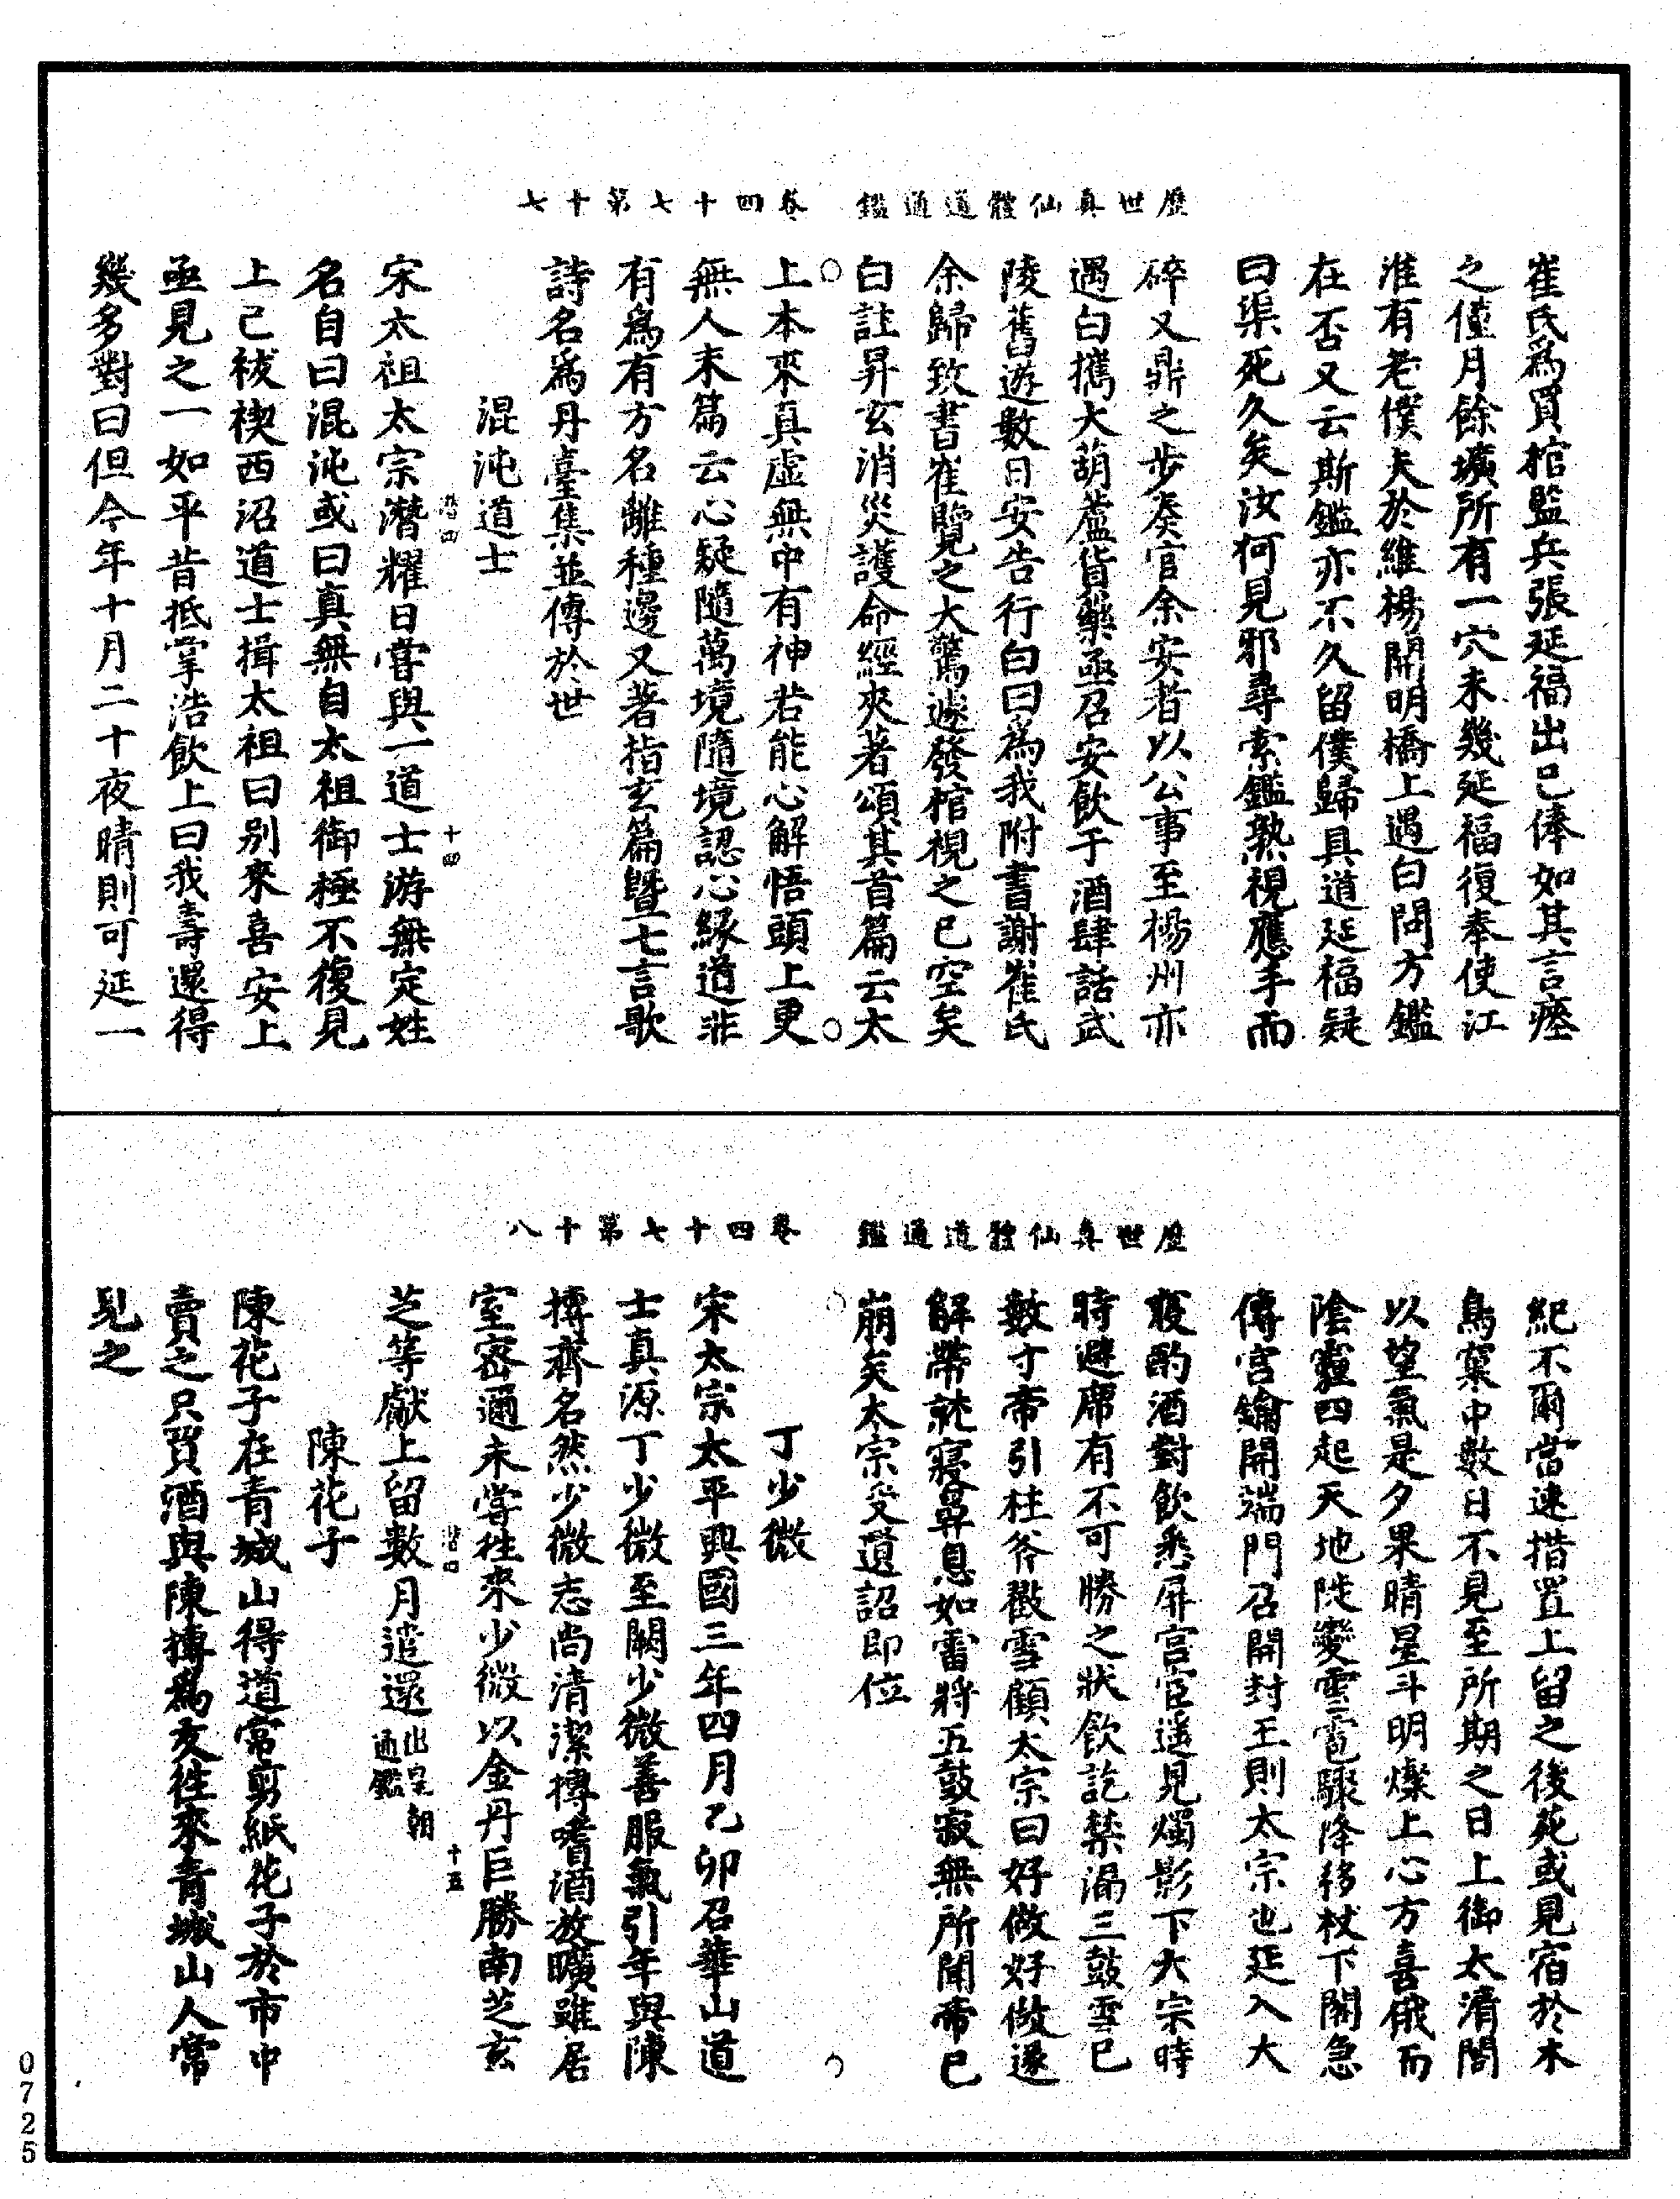 歷世真仙體道通鑑　卷四十七第十七
崔氏為買棺監兵張延福出己俸如其言瘞
之僅月餘壙所有一穴未幾延福復奉使江
淮有老僕夫於維楊開明橋上遇白問方鑑
在否又云斯鑑亦不久留僕歸具道延福疑
曰渠死久矣汝何見邪尋索鑑熟視應手而
碎又鼎之步奏官余安者以公事至楊州亦
遇白攜大葫蘆貨藥亟召安飲于酒肆話武
陵舊遊數日安告行白曰為我附書謝崔氏
余歸致書崔覽之大驚遽發棺視之已空矣
白註昇玄消災護命經夾著頌其首篇云太
上本來真虛無中有神若能心解悟頭上更
無人末篇云心疑隨萬境隨境認心緣道非
有為有方名離種邊又著指玄篇暨七言歌
詩名為丹臺集並傳於世
混沌道士
宋太祖太宗潛耀日嘗與一道士游無定姓
名自曰混沌或曰真無自太祖御極不復見
上己祓禊西沼道士揖太祖曰別來喜安上
亟見之一如平昔抵掌浩飲上曰我壽還得
幾多對曰但今年十月二十夜晴則可延一
十四
歷世真仙體道通鑑　卷四十七第十八
紀不爾當速措置上留之後苑或見宿於木
鳥窠中數日不見至所期之日上御太清閣
以望氣是夕果晴星斗明燦上心方喜俄而
陰霾四起天地陡變雪雹驟降移杖下閣急
傳宮鑰開端門召開封王則太宗也延入大
寢酌酒對飲悉屏宮宦遙見燭影下太宗時
時避席有不可勝之狀飲訖禁漏三鼓雪已
數寸帝引柱斧戳雪顧太宗曰好做好做遂
解帶就寢鼻息如雷將五鼓寂無所聞帝已
崩矣太宗受遺詔即位
丁少微
宋太宗太平興國三年四月乙卯召華山道
士真源丁少微至闕少微善服氣引年與陳
摶齊名然少微志尚清潔摶嗜酒放曠雖居
室密邇未嘗往來少微以金丹巨勝南芝玄
芝等獻上留數月遣還出皇朝通鑑
十五
陳花子
陳花子在青城山得道常剪紙花子於市中
賣之只買酒與陳摶為友往來青城山人常
見之
0725